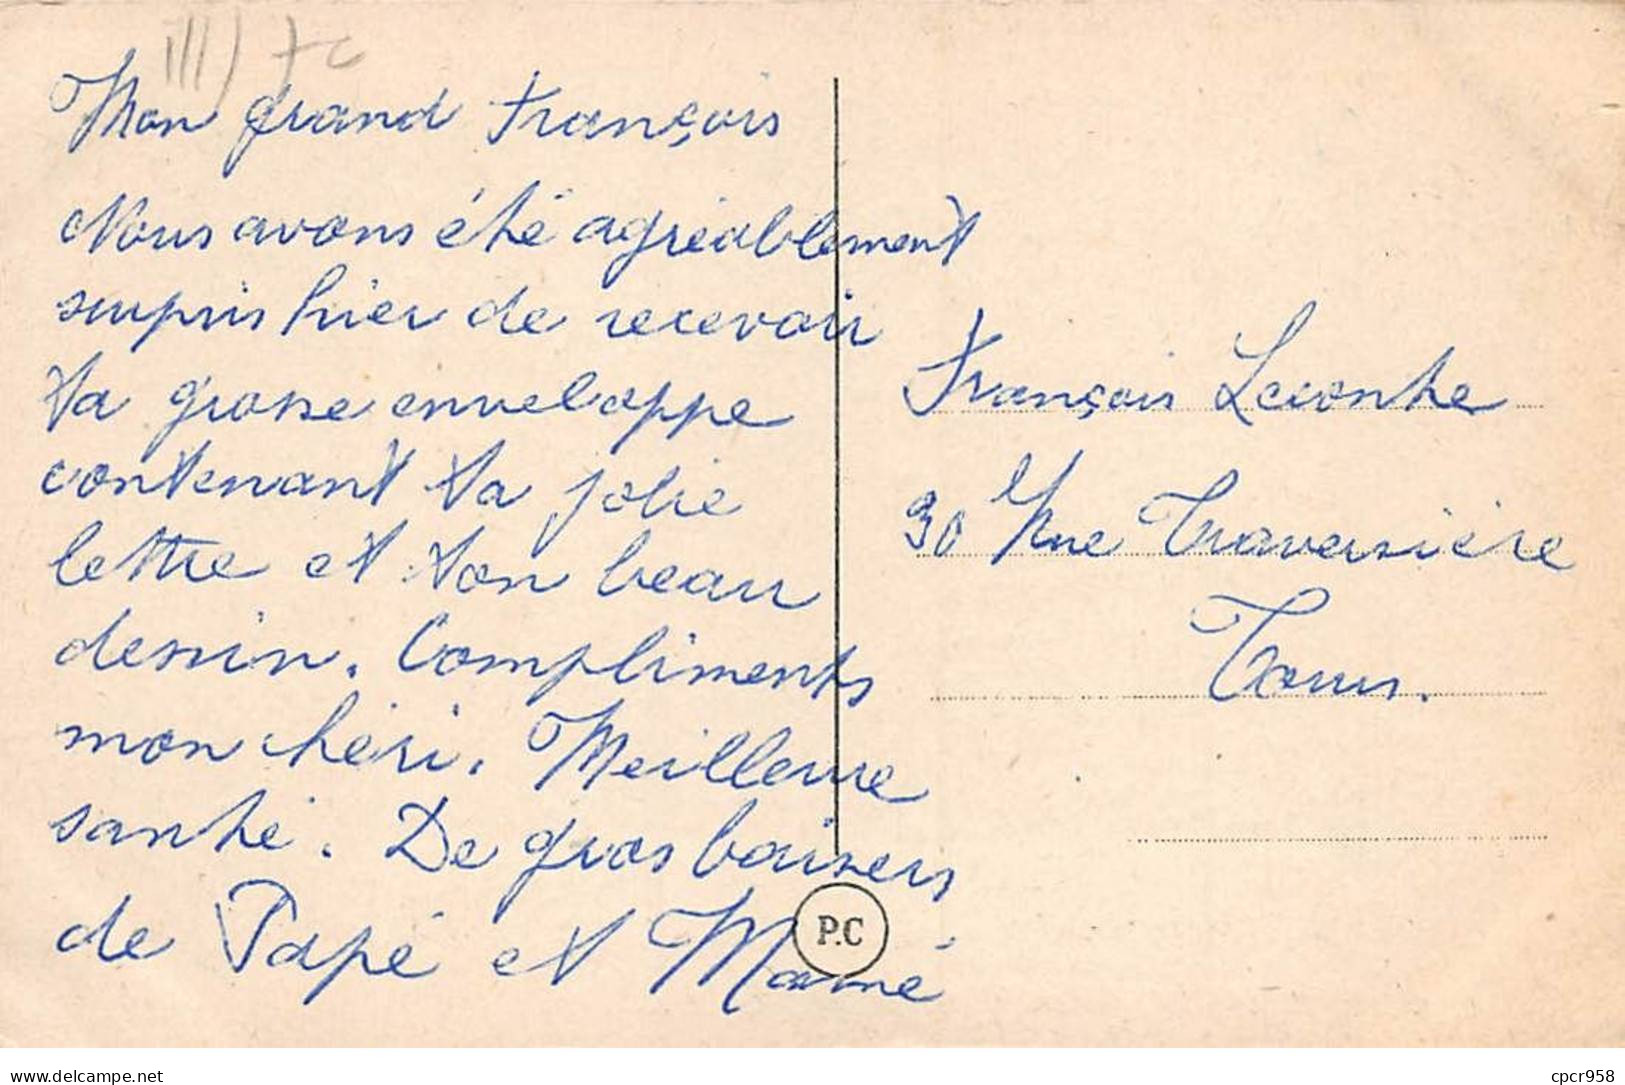 Mon grand François
Nous avons été agréablement
surpris hier de recevoir
ta grosse enveloppe
contenant ta jolie
lettre et ton beau
dessin. Compliments
mon chéri. Meilleure
santé. De gros baisers
de Papé et Mamé
P.C
François Leconte
30 Rue Traversière
Tours.
www.delcampe.net
cpcr958